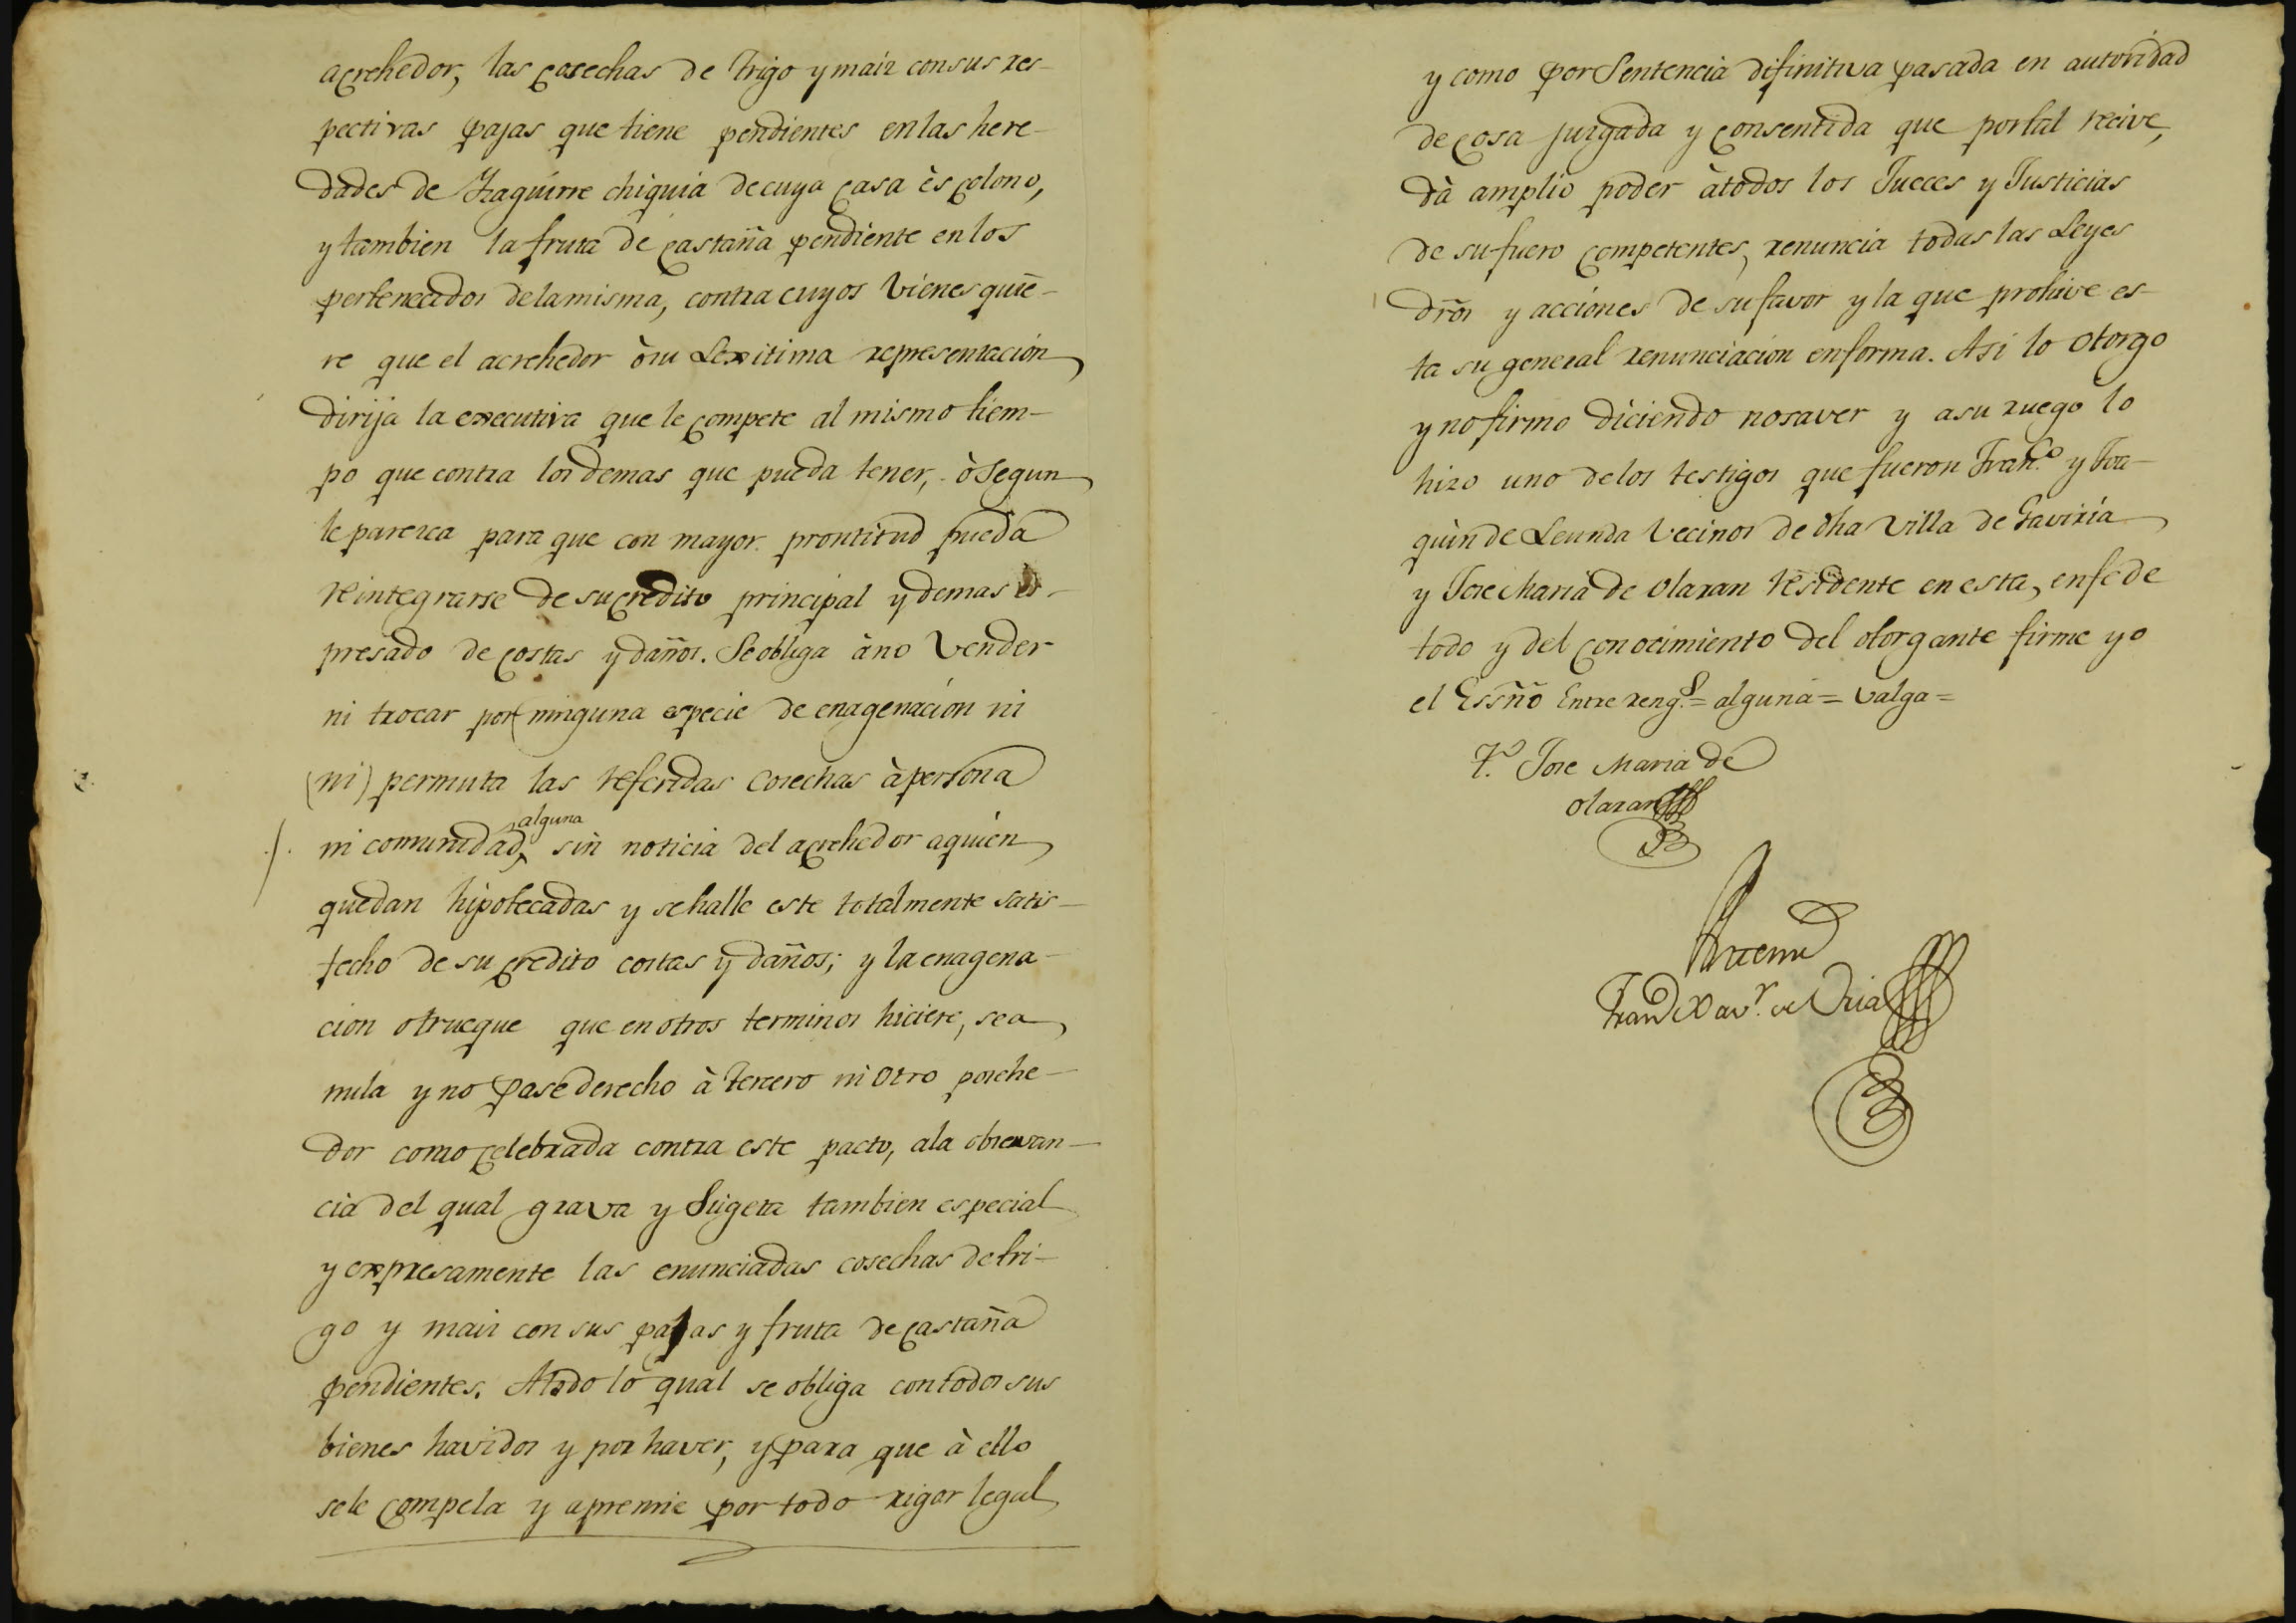 acrehedor, las cosechas de trigo y maiz con sus res-
pectivas pajas que tiene pendientes en las here-
dades de Yzaguirre chiquia de cuya casa ès colono,
y tambien la fruta de castaña pendiente en los
pertenecidos de la misma, contra cuyos vienes quie-
re que el acrehedor ò su Lexitima representación
dirija la executiva que le compete al mismo tiem-
po que contra los demas que pueda tener, ò segun
le parezca para que con mayor prontitud pueda
reintegrarse de su credito principal y demas es-
presado de costas y daños. Se obliga à no vender
ni trocar por ninguna especie de enagenación ni
(ni) permuta las referidas cosechas à persona
ni comunidad, alguna sin noticia del acrehedor a quien
quedan hipotecadas y se halle este totalmente satis-
fecho de su credito costas y daños; y la enagena-
cion o trueque que en otros terminos hiciere, sea
nula y no pase derecho à tercero ni otro posehe-
dor como celebrada contra este pacto, a la observan-
cia del qual grava y sugeta tambien especial
y expresamente las enunciadas cosechas de tri-
go y maiz con sus pajas y fruta de castaña
pendientes. A todo lo qual se obliga con todos sus
bienes havidos y por haver, y para que à ello
se le compela y apremie por todo rigor legal
y como por Sentencia difinitiva pasada en autoridad
de cosa juzgada y consentida que por tal recive,
dà amplio poder à todos los Jueces y Justicias
de su fuero competentes, renuncia todas las Leyes
dr̃os y acciones de su favor y la que prohive es-
ta su general renunciación en forma. Asi lo otorgo
y no firmo diciendo no saver y a su ruego lo
hizo uno de los testigos que fueron Fran.co y Joa-
quin de Leunda vecinos de dha villa de Gaviria
y Jose Maria de Olaran residente en esta, en fe de
todo y del conocimiento del otorgante firme yo
el Essño Entre reng.s = alguna = valga =
T.o Jose Maria de
Olaran
Ante mi
Fran.co Xav.r de Oria